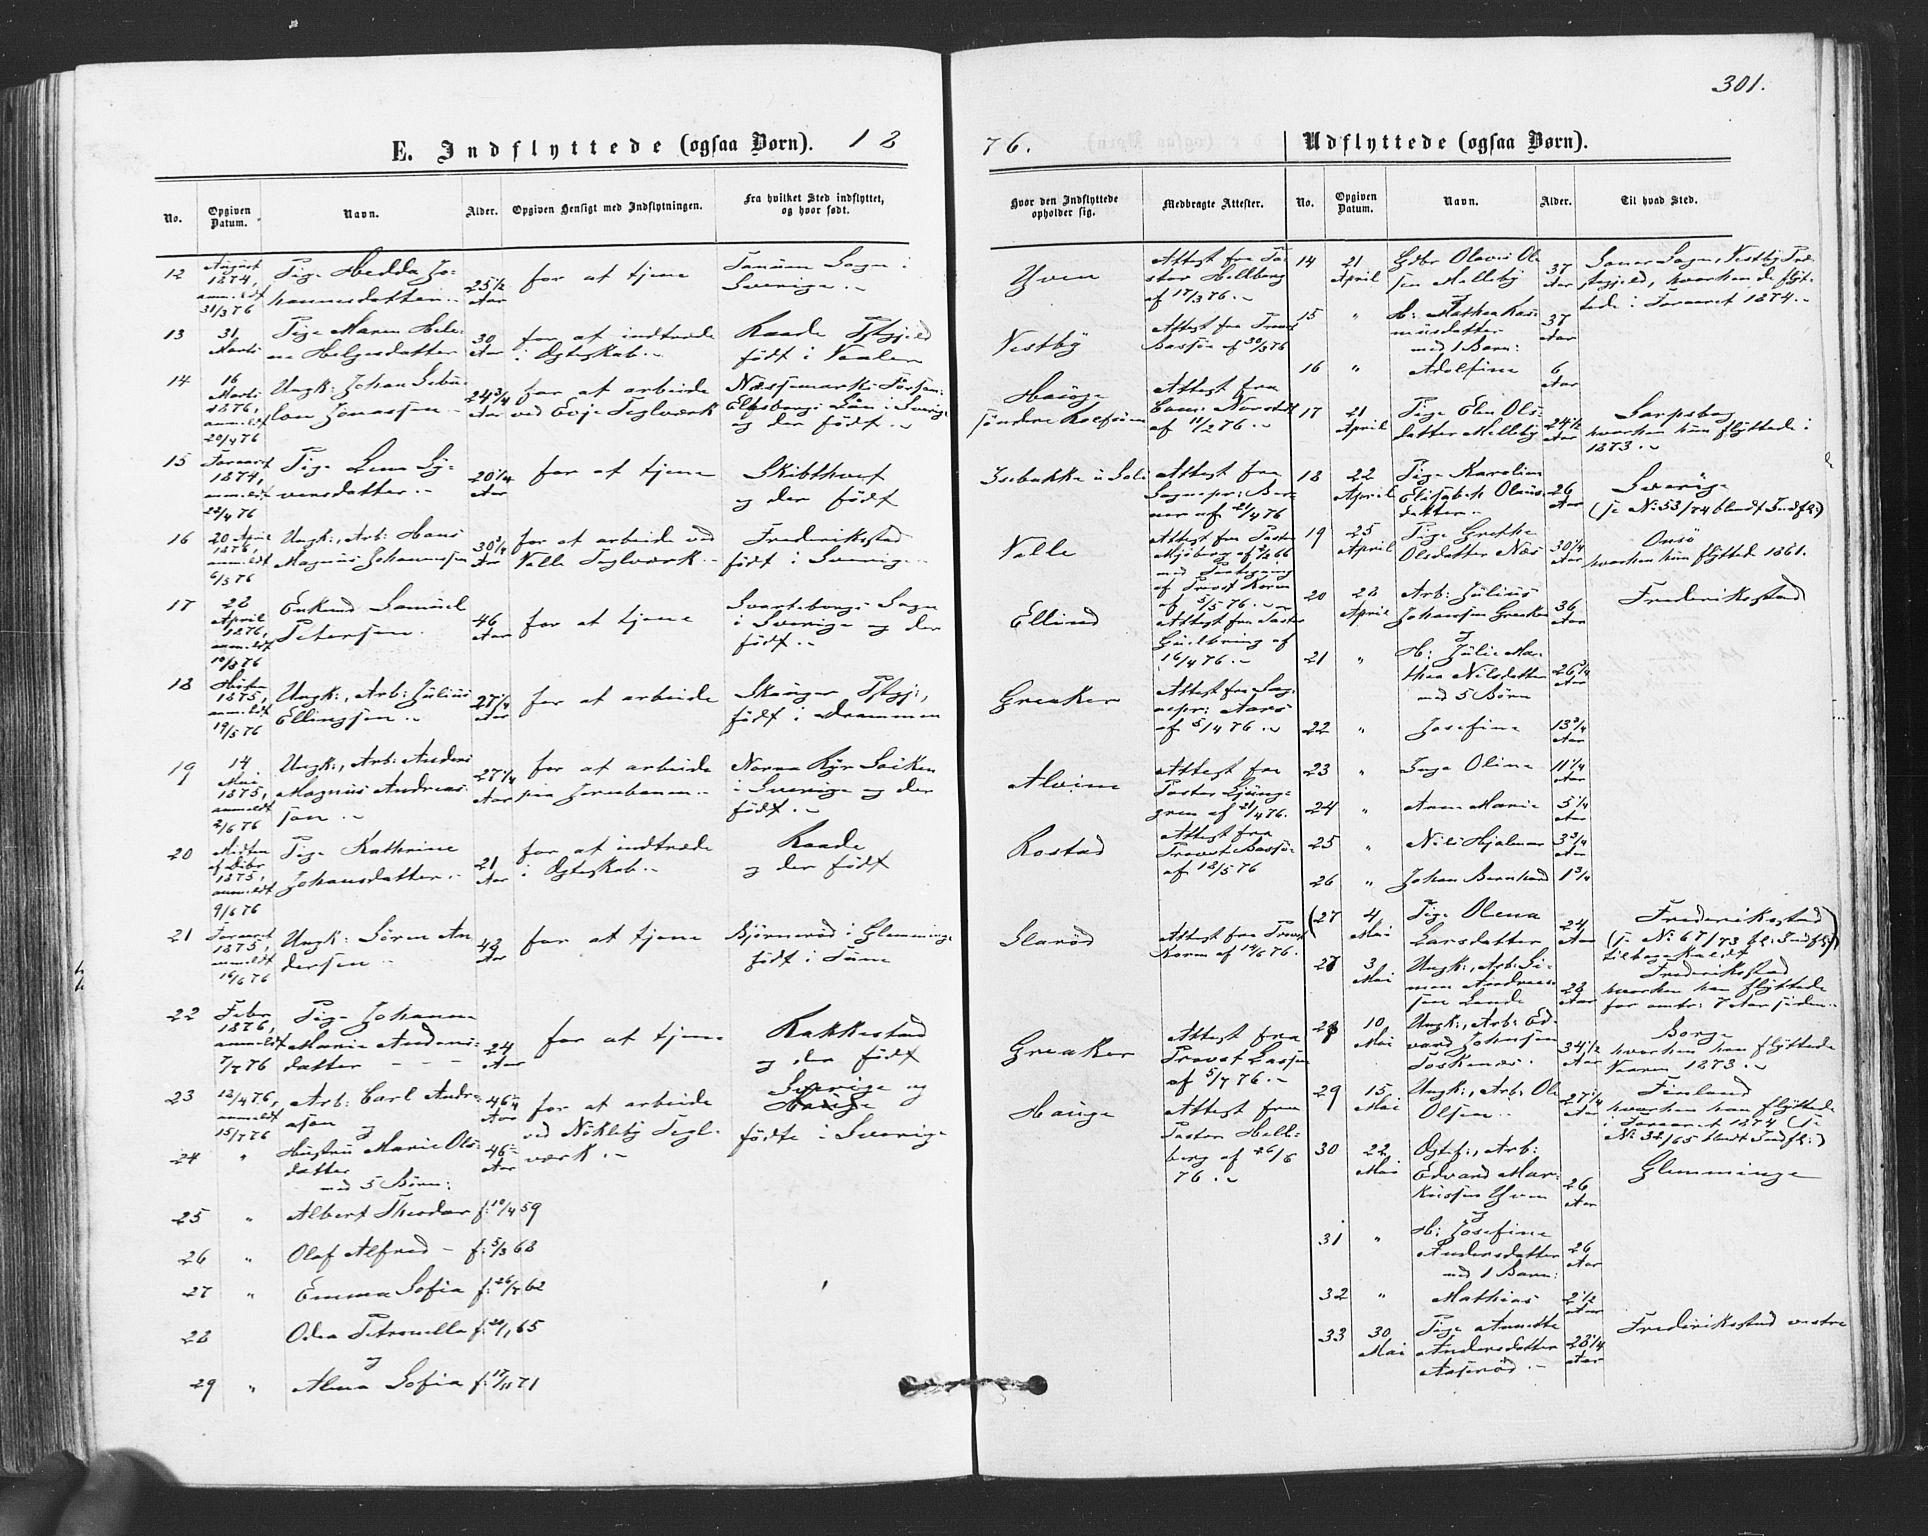 301.
E. Indflyttede (ogsaa Børn). 18
76. Udflyttede (ogsaa Børn).
No. Opgiven Datum. Navn. Alder. Opgiven Hensigt med Indflytningen. Fra hvilket Sted indflyttet, og hvor født.
Hvor den Indflyttede opholder sig. Medbragte Attester. No. Opgiven Datum. Navn. Alder. Til hvad Sted.
12 August 1874, anmeldt 31/3 76 Pige Hedda Johannesdatter 25 1/2 Aar for at tjene Tanum Sogn i Sverige
Yven Attest fra Pastor Hellberg af 17/3 76.
13 31 Marti Pige Maren Helene Helgesdatter 30 Aar for at indtræde i Ægteskab Raade Pgjeld født i Vaaler
Vestby Attest fra Provst Bassøe af 30/3 76
14 16 Marti 1876, anmeldt 20/4 76 Ungk: Johan Jonassen 24 3/4 Aar for at arbeide ved Evje Teglværk Elfsborgs Län i Sverige og der født
Hauge søndre Rolfsøen Attest fra af 11/2 76.
15 Foraaret 1874, anmeldt 22/4 76 Pige Lena Syvensdatter 20 1/4 Aar for at tjene Skibthvet og der født
Isebakke Attest fra Sognepr: af 21/4 76
16 20 April 1876, anmeldt 6/5 76 Ungk:, Arb: Hans Magnus Johannesen 30 3/4 Aar for at arbeide ved Valle Teglværk Frederikstad født i Sverige
Valle Attest fra Pastor med Paategning af Provst Koren af 5/5 76.
17 28 April 1876, anmeldt Enkemd Samuel Petersen 46 Aar for at tjene Svarteborgs Sogn i Sverige og der født
Ellind Attest fra Pastor af 16/4 76.
18 Høsten 1875, anmeldt 19/5 76 Ungk:, Arb: Julius Ellingsen 27 1/4 Aar for at arbeide Skauger Pgj:, født i Drammen
Greaker Attest fra Sognepr: Aars af 5/4 76.
19 14 Mai 1875, anmeldt 2/6 76 Ungk:, Arb: Anders Magnus Andreassen 27 1/4 Aar for at arbeide paa Jernbanen i Sverige og der født
Alvim Attest fra Pastor Ljunggren af 21/4 76.
20 Midten af Dcbr 1875, anmeldt 9/6 76 Pige Kathrine Johansdatter 21 Aar for at indtræde i Ægteskab Raade og der født
Rostad Attest fra Provst Bassøe af 18/5 76
21 Foraaret 1875, anmeldt 16/6 76 Ungk: Sören Andersen 48 Aar for at tjene Björneröd i Glemminge født i Tune
Attest fra Provst Koren af 14/6 76.
22 Febr 1876, anmeldt 7/7 76 Pige Johanne Marie Andersdatter 24 Aar for at tjene Rakkestad og der født
Greaker Attest fra Provst af 5/7 76.
23 12/4 76, anmeldt 15/7 76 Arb: Carl Andreasen og 46 Aar for at arbeide ved Nökleby Teglværk Sverige og Hauge fødte i Sverige
Hauge Attest fra Pastor Hellberg af 26/6 76.
24 " Hustru Marie Olsdatter med 5 Børn: 46 Aar
25 " Albert Theodor f: 10/4 59
26 " Olof Alfred f: 5/3 68
27 " Emma Sofia f: 26/7 62
28 Odea Petronella f: 20/1 65
og
29 " Alma Sofia f: 17/11 71
14 21 April Gdbr Olavus Olsen Melleby 37 Aar Saner Sogn, Vestby Prestegjeld, hvorhen de flyttede i Foraaret 1874.
15 " H: Mathea Rasmusdatter med 1 Barn: 37 Aar
16 " Adolfine 6 Aar
17 21 April Pige Elen Olsdatter Melleby 24 1/2 Aar Sarpsborg hvorhen hun flyttede i 1873.
18 22 April Pige Karoline Elisabeth Olausdatter 26 Aar Sverige (se No 53/74 blandt Indfl:)
19 25 April Pige Grethe Olsdatter Næs 30 1/4 Aar Onsö hvorhen hun flyttede 1861.
20 28 April Arb: Julius Johansen Greaker og 36 Aar Frederikstad
21 " H: Julie Marthea Nilsdatter med 5 Børn 26 3/4 Aar
22 " Josefine 13 3/4 Aar
23 " Inga Olina 11 1/4 Aar
24 " Anne Marie 5 1/4 Aar
25 " Nils Hjalmar 3 3/4 Aar
26 " Johan Bernhard 1 3/4
(27 4 Mai Pige Olena Larsdatter 24 Aar Frederikstad (se No 67/73 bl: Indfl:) tilbagekaldt
27 3 Mai Ungk:, Arb: Simen Andreassen Lande 28 Aar Frederikstad hvorhen han flyttede for omtr: 7 Aar siden
28 10 Mai Ungk:, Arb: Edvard Johnsen Torkenæs 34 1/2 Aar Borge hvorhen han flyttede Vaaren 1873.
29 15 Mai Ungk:, Arb: Ole Olsen 27 1/4 Aar Finland hvorhen han flyttede i Foraaret 1874 (se No 32/65 blandt Indfl:)
30 22 Mai Ægtef:, Arb: Edvard Markussen Yven og 26 Aar Glemminge
31 " H: Josefine Andersdatter med 1 Barn: 26 Aar
32 " Mathias 2 1/2 Aar
33 30 Mai Pige Annette Andersdatter Aaseröd 28 1/4 Aar Frederikstad vestre